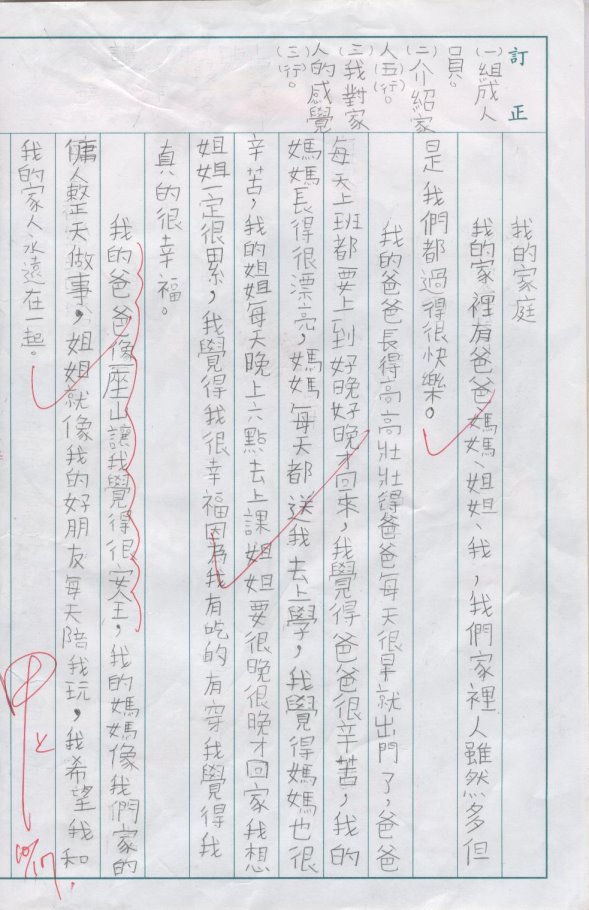 訂正
(一)組成人
員。
(二)介紹家
人(五行)。
(三)我對家
人的感覺
(三行)。
我的家庭
我的家裡有爸爸媽媽、姐姐、我，我們家裡人雖然多但
是我們都過得很快樂。
我的爸爸長得高高壯壯得爸爸每天很早就出門了，爸爸
每天上班都要上到好晚好晚才回來，我覺得爸爸很辛苦，我的
媽媽長得很漂亮，媽媽每天都送我去上學，我覺得媽媽也很
辛苦，我的姐姐每天晚上六點去上課姐姐要很晚很晚才回家我想
姐姐一定很累，我覺得我很幸福因為我有吃的有穿我覺得我
真的很幸福。
我的爸爸像一座山讓我覺得很安全，我的媽媽像我們家的
傭人整天做事，姐姐就像我的好朋友每天陪我玩，我希望我和
我的家人永遠在一起。
甲上
10/17